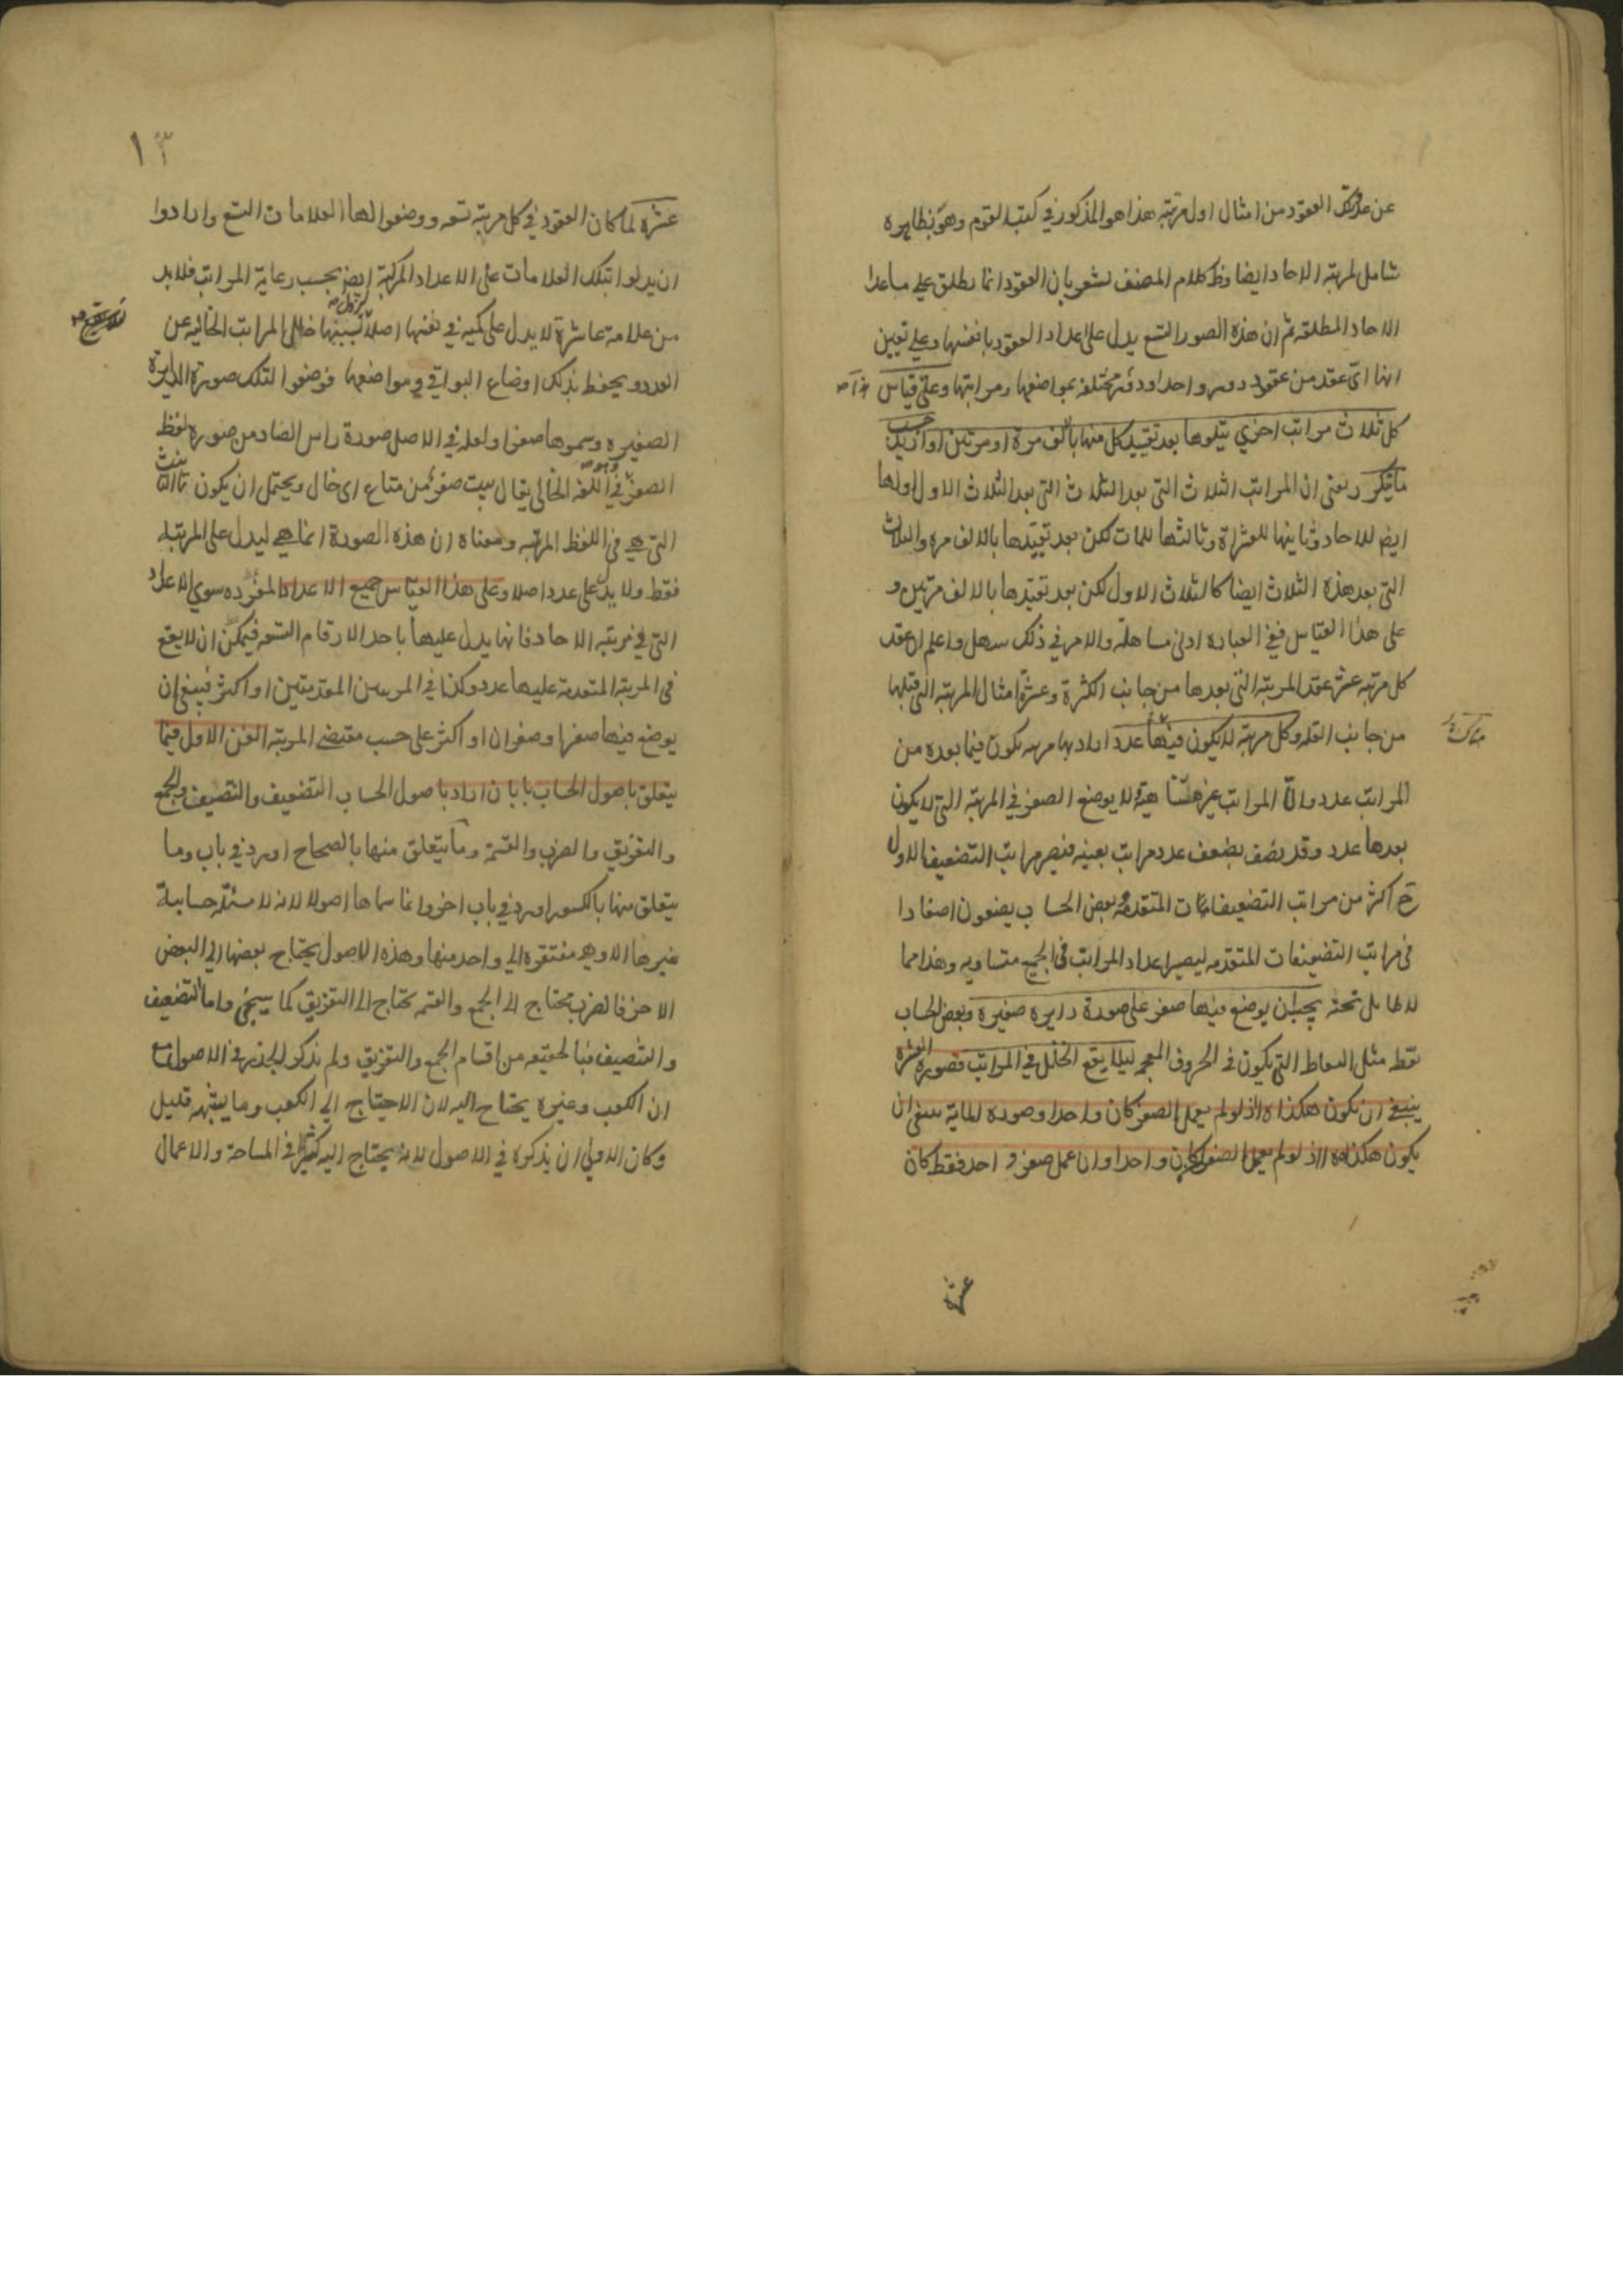 عن عدد تلك العقود من امثال اول مرتبة هذا هو المذكور في كتب القوم وهو بظاهره
شامل لمرتبة الاحاد ايضا وظ كلام المصنف يشعر بان العقود انما يطلق على ما عدا
الاحاد المطلقه ثم ان هذه الصور التسع يدل على اعداد العقود بانفسها وعلى تعيين
انها اي عقد من عقود واحدا مختلفة بمواضعها ومراتبها وعلى قياس
كل ثلاث مراتب اخري يتلوها بعد تقييد كل منها بالف مرة او مرتين او ازيد حسب
ما تكرر يعني ان المراتب الثلاث التي بعد الثلاث التي بعد الثلاث الاول اولها
ايض للاحاد وثانيها للعشراة وثالثها للمات لكن بعد تقييدها بالالف مره والثلاث
التي بعد هذه الثلاث ايضا كالثلاث الاول لكن بعد تقييدها بالالف مرتين و
على هذا القياس ففي العبارة ادنى مساهلة والامر في ذلك سهل واعلم ان عقد
كل مرتبه عشر عقد المرتبة التي بعدها من جانب الكثرة وعشرة امثال المرتبة التي قبلها
من جانب القله وكل مرتبه لا يكون فيها عدد اراد بها مرتبه يكون فيما بعده من
المراتب عدد والا المراتب غير متناهية لا يوضع الصفر في المرتبة التي لا يكون
بعدها عدد وقد يضعف عدد مراتب بعينه فيصير مراتب التضعيف الاول
ح اكثر من مراتب التضعيفات المتقدمة وبعض الحساب يضعون اصفارا
في مراتب التضعيفات المتقدمه ليصير اعداد المراتب في الجميع متساويه وهذا مما
لا طايل تحته يجب ان يوضع فيها صفر على صورة دايره صغيره وبعض الحساب
نقط مثل النقاط التي تكون في الحروف المعجمه ليلا يقع الخلل في المراتب فصورة العشره
ينبغي ان تكون هكذا ١٠ اذ لو لم يعمل الصفر كان واحدا وصورة الماية ينبغي ان
يكون هكذا ١٠٠ اذ لو لم يعمل الصفران كان واحدا وان عمل صفر واحد فقط كان
عشرة
١٣
عشرة لما كان العقود في كل مرتبة تسعه ووضعوا لها العلامات التسع وارادوا
ان يدلوا بتلك العلامات على الاعداد المركبة ايض بحسب رعاية المراتب فلابد
من علامة عاشرة لا يدل على كمية في نفسها اصلا يزول بسببها خلل المراتب الخاليه عن
العدد ويحفظ بذلك اوضاع البواقي ومواضعها فوضعوا لتلك صورة الدايرة
الصغيره وسموها صفرا ولعله في الاصل صورة راس الصاد من صورة لفظ
الصفر وهو في اللغه الخالي يقال بيت صفر من متاع اي خال ويحتمل ان يكون
التي هي في اللفظ المرتبه ومعناه ان هذه الصورة انما هي ليدل على المرتبة
فقط ولا يدل على عدد اصلا وعلى هذا القياس جميع الاعداد المفرده سوي الاعداد
التي في مرتبة الاحاد فانها يدل عليها باحد الارقام التسعه فيمكن ان لا يقع
في المرتبة المتقدمة عليها عدد وكذا في المرتبتين المقدمتين او اكثر فينبغي ان
يوضع فيها صفرا وصفران او اكثر على حسب مقتضى المرتبة الفن الاول فيما
يتعلق باصول الحساب بابان اراد باصول الحساب التضعيف والتنصيف والجمع
والتفريق والضرب والقسمة وما يتعلق منها بالصحاح اورد في باب وما
يتعلق منها بالكسور اورد في باب اخر وانما سماها اصولا لانه لا مسئلة حسابية
غيرها الا وهي مفتقره الى واحد منها وهذه الاصول يحتاج بعضها الى البعض
الاخر فالضرب يحتاج الى الجمع والقسمة يحتاج الى التفريق كما سيجئ واما التضعيف
والتنصيف فبالحقيقه من اقسام الجمع والتفريق ولم يذكر الجذر في الاصول مع
ان الكعب وغيره يحتاج اليه لان الاحتياج الى الكعب وما يشبهه قليل
وكان الاولى ان يذكره في الاصول لانه يحتاج اليه كثيرا في المساحة والاعمال